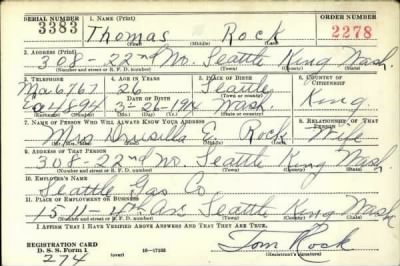 SERIAL NUMBER 1. NAME (Print) ORDER NUMBER
3383 Thomas Rock 2278
(First) (Middle) (Last)
2. ADDRESS (Print)
308-22nd No. Seattle King Wash.
(Number and street or R. F. D. number) (Town) (County) (State)
3. TELEPHONE 4. AGE IN YEARS 5. PLACE OF BIRTH 6. COUNTRY OF CITIZENSHIP
Ma 6767 26 Seattle
DATE OF BIRTH (Town or county)
Ea 4894 3-26-1914 Wash. King
(Exchange) (Number) (Mo.) (Day) (Yr.) (State or country)
7. NAME OF PERSON WHO WILL ALWAYS KNOW YOUR ADDRESS 8. RELATIONSHIP OF THAT PERSON
Mrs Drusilla E. Rock Wife
(Mr., Mrs., Miss) (First) (Middle) (Last)
9. ADDRESS OF THAT PERSON
308-22nd No. Seattle King Wash
(Number and street or R. F. D. number) (Town) (County) (State)
10. EMPLOYER'S NAME
Seattle Gas Co
11. PLACE OF EMPLOYMENT OR BUSINESS
Seattle King Wash
(Number and street or R. F. D. number) (Town) (County) (State)
I AFFIRM THAT I HAVE VERIFIED ABOVE ANSWERS AND THAT THEY ARE TRUE.
REGISTRATION CARD
D. S. S. Form 1 (over) 16-17105 Tom Rock
274 (Registrant's signature)